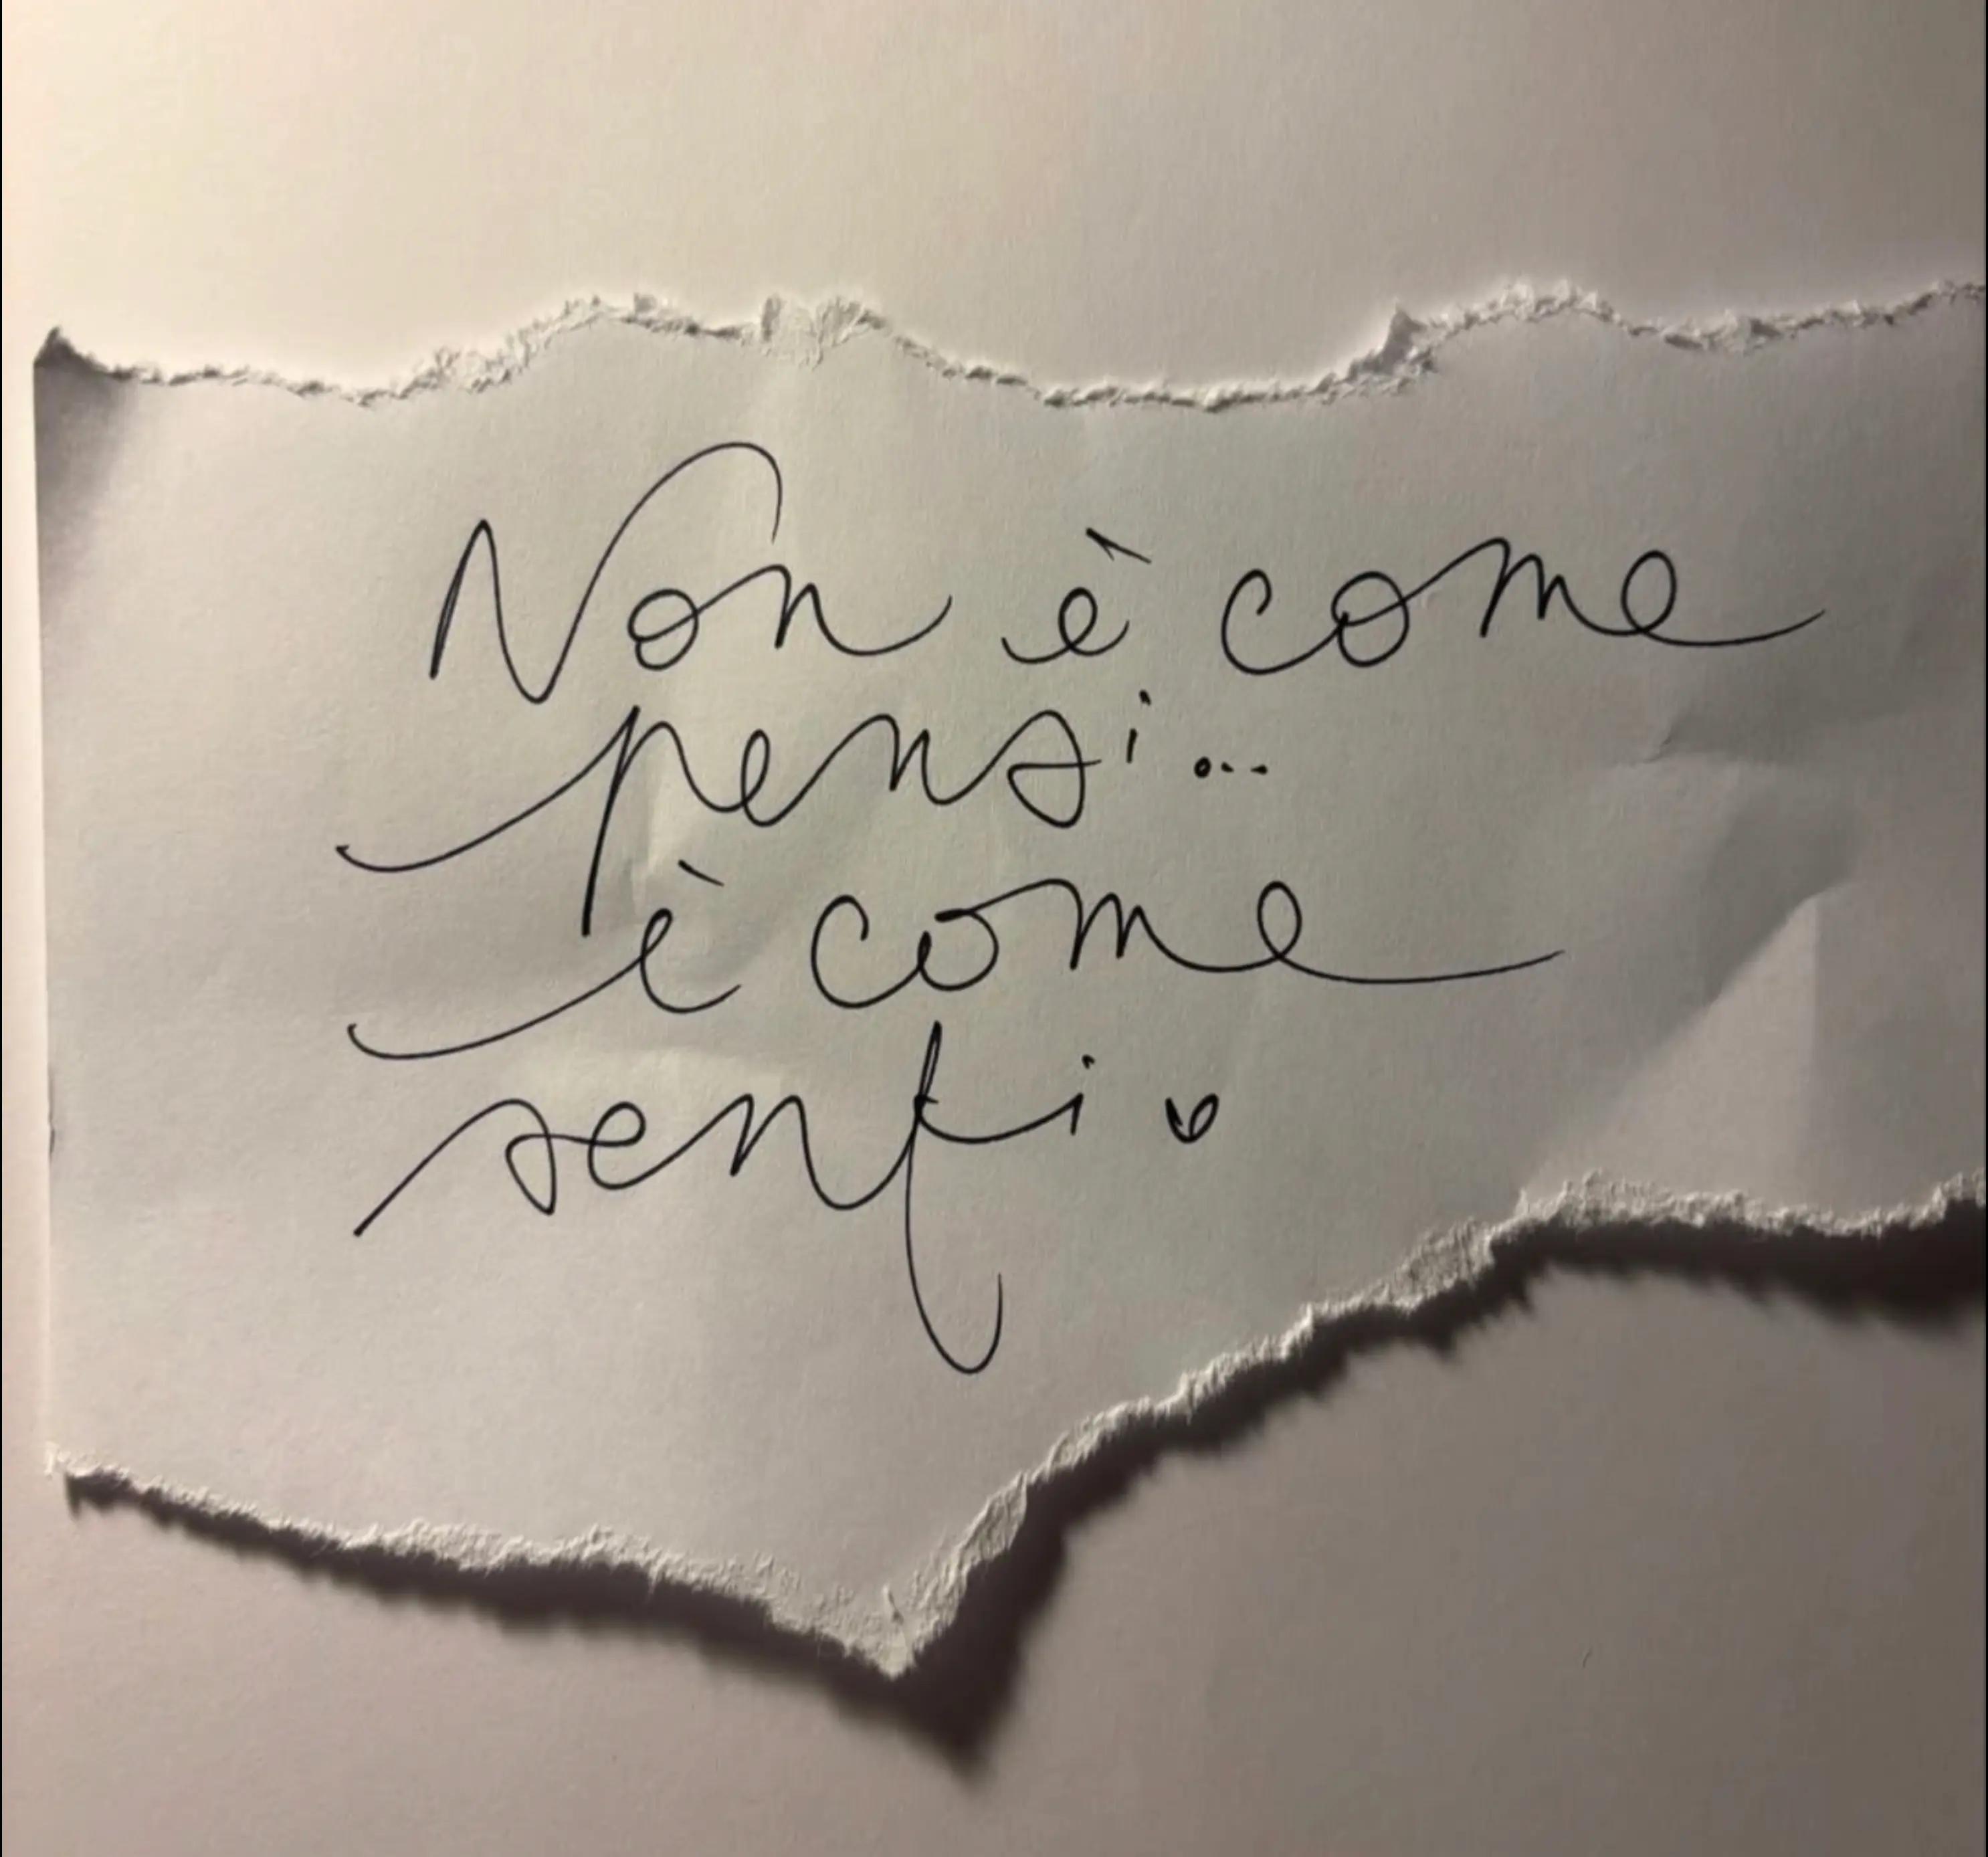 Non è come
pensi...
è come
senti